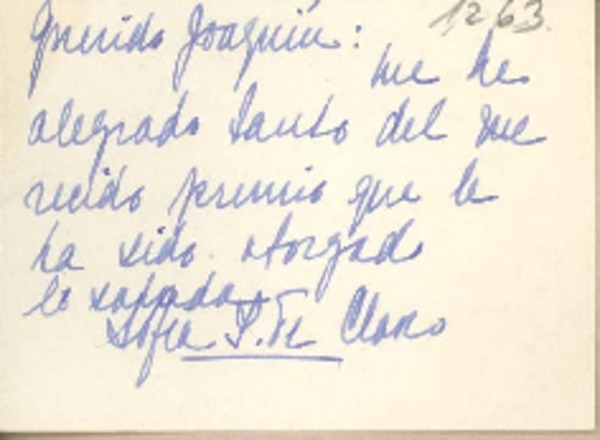 1263.
Querido Joaquín:
me he
alegrado tanto del me
recido premio que le
ha sido otorgado
lo
Sofía P. de Claro